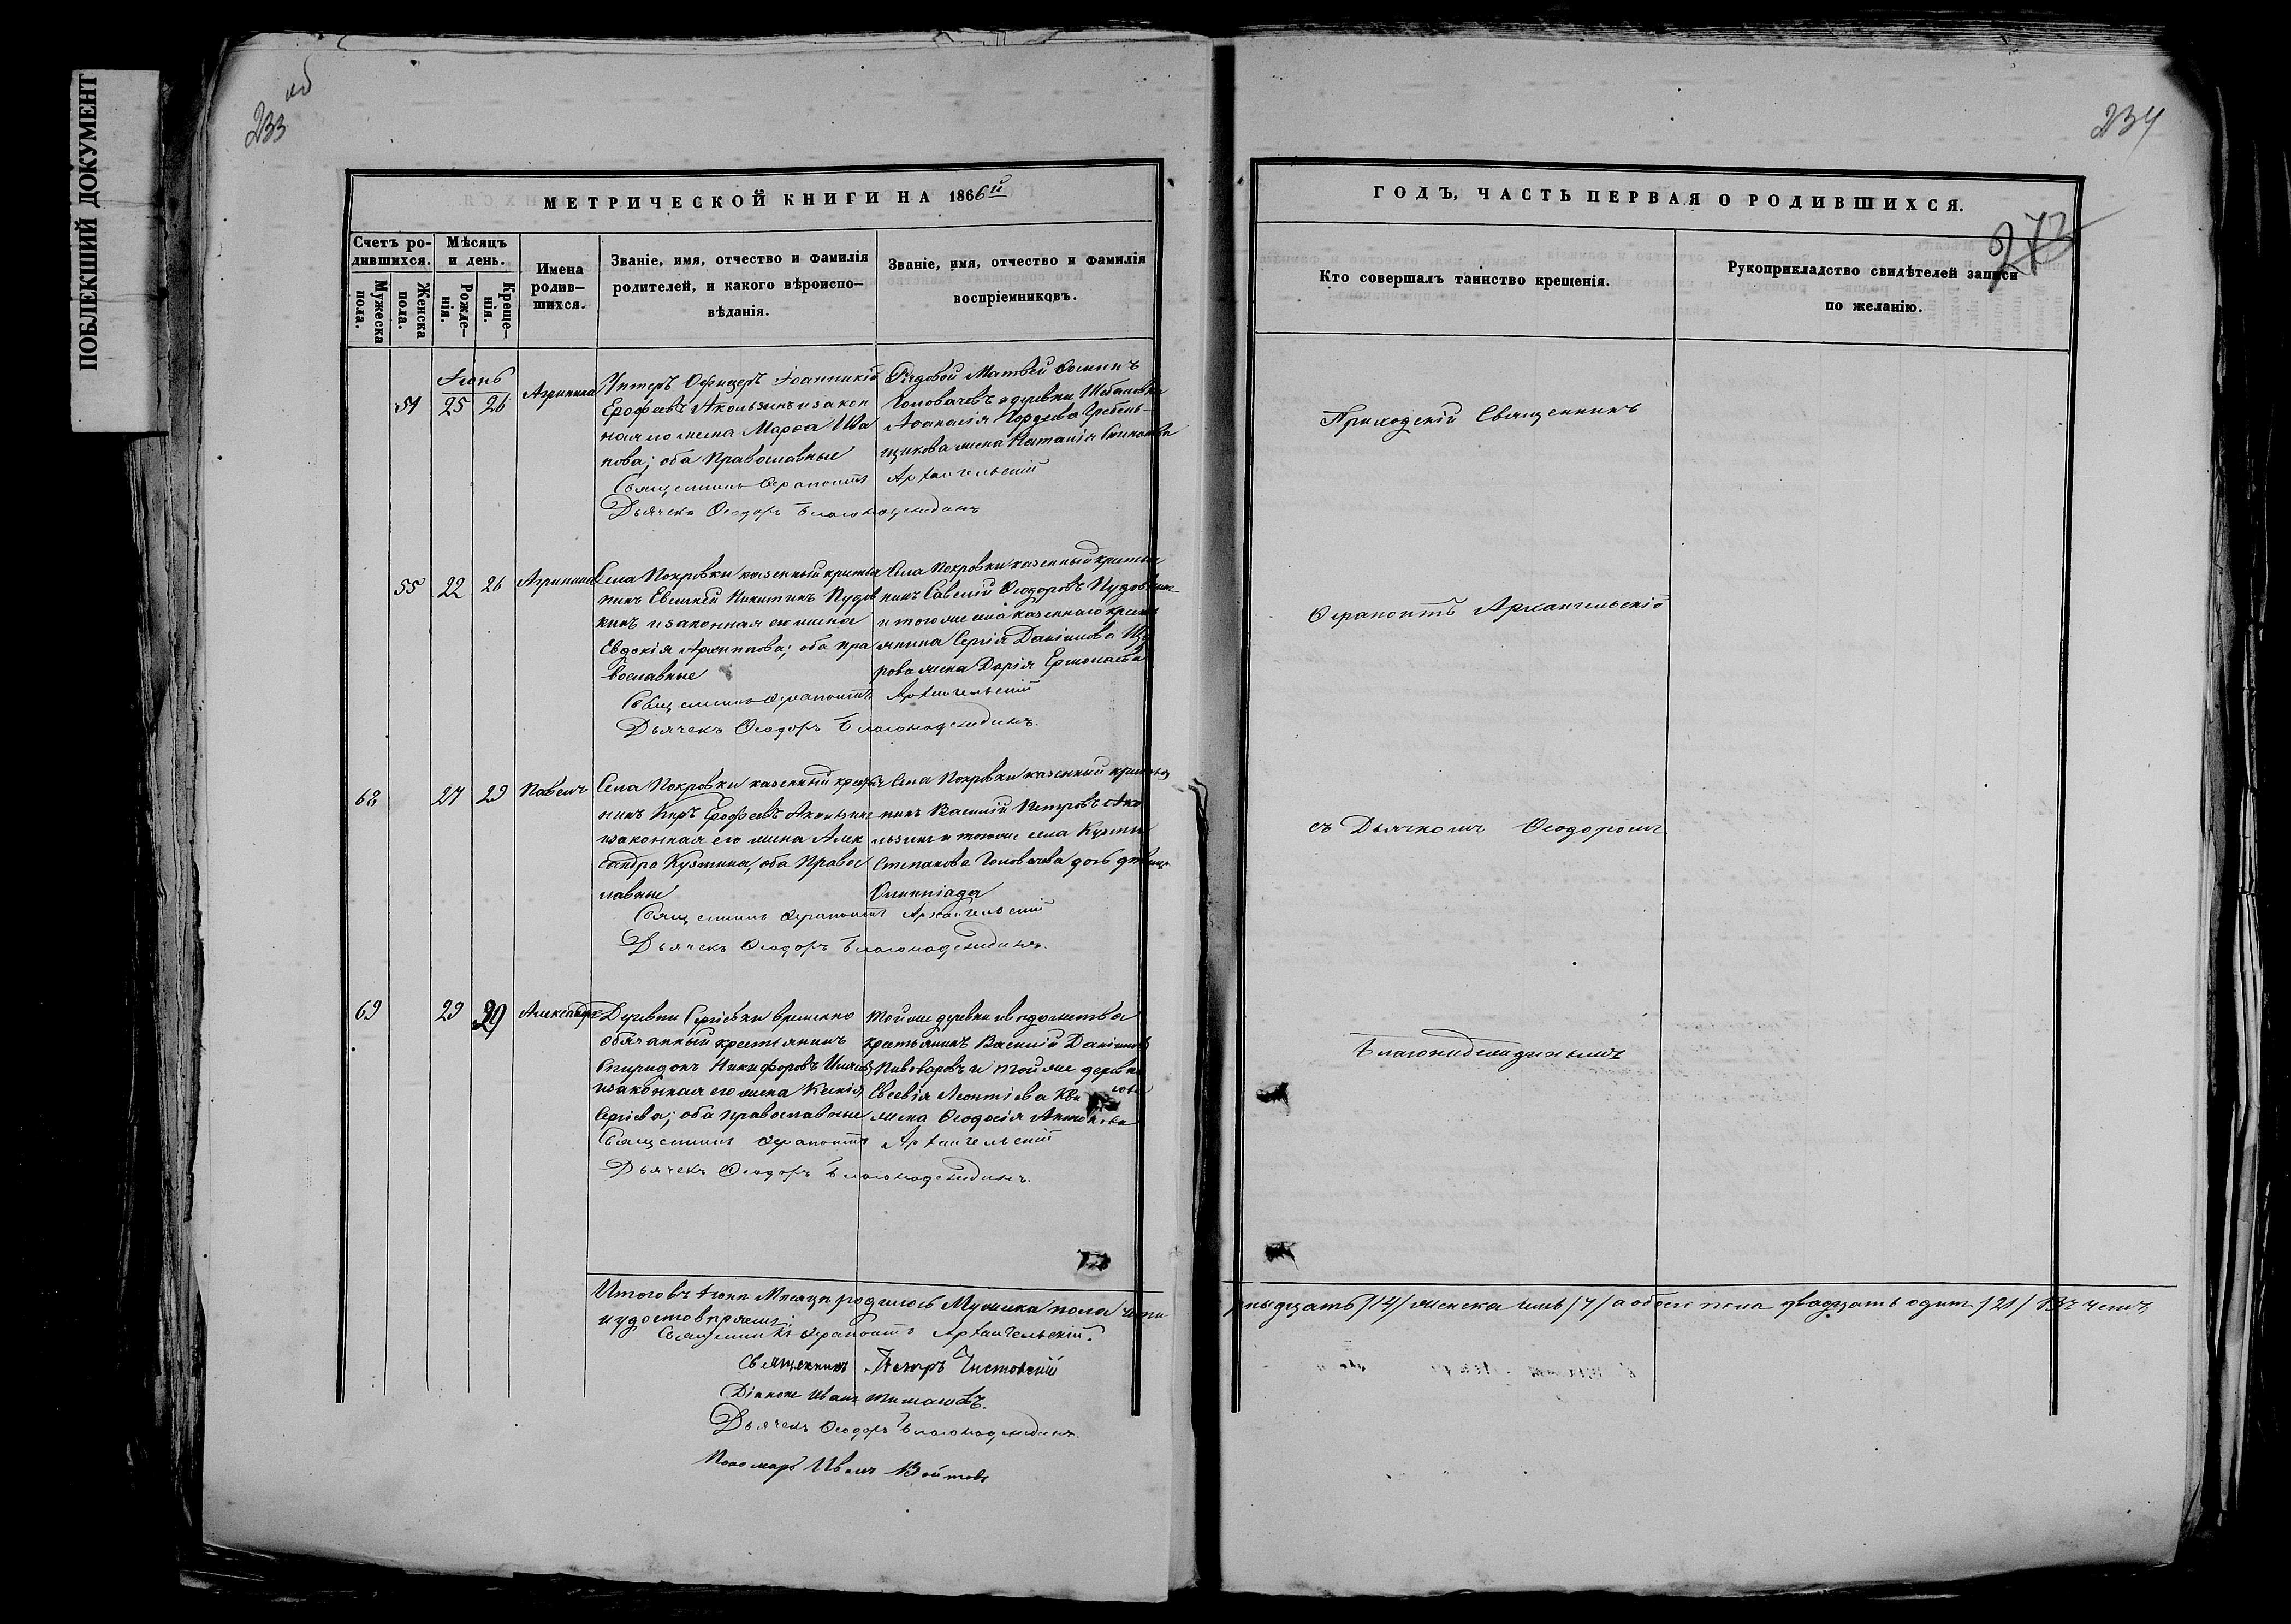 ПОБЛЕКШИЙ ДОКУМЕНТ
233 об
234
МЕТРИЧЕСКОЙ КНИГИ НА 1866й
ГОДЪ, ЧАСТЬ ПЕРВАЯ О РОДИВШИХСЯ.
273
Счетъ ро-
дившихся.
Мужеска
пола.
Женска
пола.
Мѣсяцъ
и день.
Рожде-
нія.
Креще-
нія.
Имена
родив-
шихся.
Званіе, имя, отчество и фамилія
родителей, и какого вѣроиспо-
вѣданія.
Званіе, имя, отчество и фамилія
воспріемниковъ.
Кто совершалъ таинство крещенія.
Рукоприкладство свидѣтелей записи
по желанію.
Іюнь
54 25 26 Агрипина
Унтеръ Офицеръ Іоанникій
Ерофеевъ Акользинъ и закон
ная его жена Марѳа
пова; оба Православные
Рядовой Матвей Ѳоминъ
Головачовъ и деревни
Аѳанасія Гордеева Гребень-
щикова жена Наталія
Священникъ Ѳерапонтъ Архангельскій
Дьячекъ Ѳеодоръ Благонадеждинъ
Приходскій Священникъ
55 22 26 Агрипина
Села Покровки казенный крестья
нинъ Евсигней Никитинъ Пудов
кинъ и законная его жена
Евдокія Архиппова; оба пра
вославные
Села Покровки казенный крестья
нинъ Савелій Ѳеодоровъ Пудовкин
и того же села казеннаго кресть
янина Сергія Даніилова
рова жена Дарія Ермолаева
Священникъ Ѳерапонтъ Архангельскій
Дьячекъ Ѳеодоръ Благонадеждинъ.
Ѳерапонтъ Архангельскій
68 27 29 Павелъ
Села Покровки казенный крестья
нинъ Киръ Ерофеевъ Акользинъ
и законная его жена Алек
сандра Кузмина, оба Правос
лавные
Села Покровки казенный крестья
нинъ Василій Петровъ Ако
льзинъ и тогоже села Кузмы
Степанова Головачева дочь девица
Олимпіада
Священникъ Ѳерапонтъ Архангельскій
Дьячекъ Ѳеодоръ Благонадеждинъ.
съ Дьячкомъ Ѳеодоромъ
69 29 29 Александръ
Деревни Сергіевки временно
обязанный крестьянинъ
Спиридонъ Никифоровъ
и законная его жена Ксенія
Сергіева; оба православные
Той же деревни и ведомства
крестьянинъ Василій Даніиловъ
Пивоваровъ и той же деревни
Евсевія Леонтіева
жена Ѳеодосія Антонова
Священникъ Ѳерапонтъ Архангельскій
Дьячекъ Ѳеодоръ Благонадеждинъ.
Благонадеждинымъ
Итого въ Іюне Месяце родилось Мужеска пола четы
рнадцать /14/ женска семь /7/ а обоего пола двадцать одинъ /21/ Въ чемъ
и удостоверяемъ:
Священникъ Ѳерапонтъ Архангельскій.
Священникъ Петръ Чистовскій
Діаконъ Иванъ Тимашевъ.
Дьячекъ Ѳеодоръ Благонадеждинъ.
Пономарь Иванъ Войтовъ